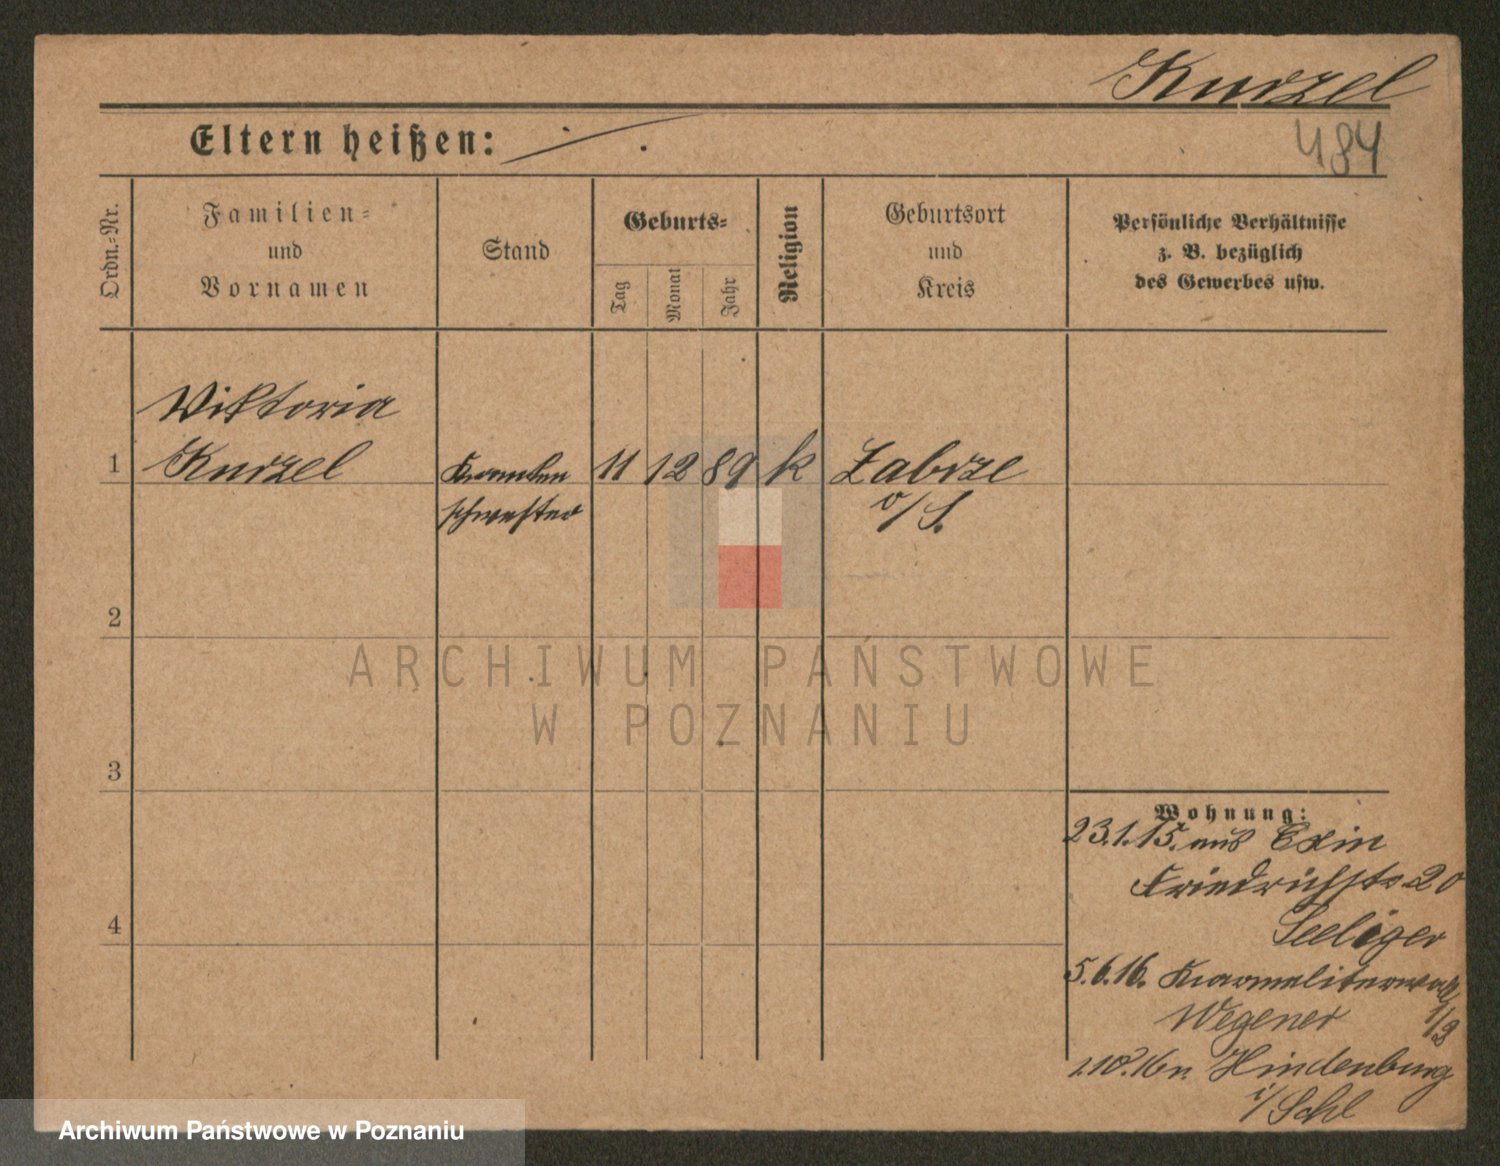 Kurzel
Eltern heißen: ./.
484
Ordn.=Nr.
Familien=
und
Vornamen
Stand
Geburts=
Tag
Monat
Jahr
Religion
Geburtsort
und
Kreis
Persönliche Verhältnisse
z. B. bezüglich
des Gewerbes usw.
Viktoria
1 Kurzel Kranken 11 12 89 k Zabrze
schwester o/S.
2
ARCHIWUM PAŃSTWOWE
W POZNANIU
3
Wohnung:
23.1.15. aus Exin
Friedrichstr 20
4
Seeliger
5.6.16. Karmeliterwall
1/2
Wegener
1.10.16 n. Hindenburg
i/Schl
Archiwum Państwowe w Poznaniu